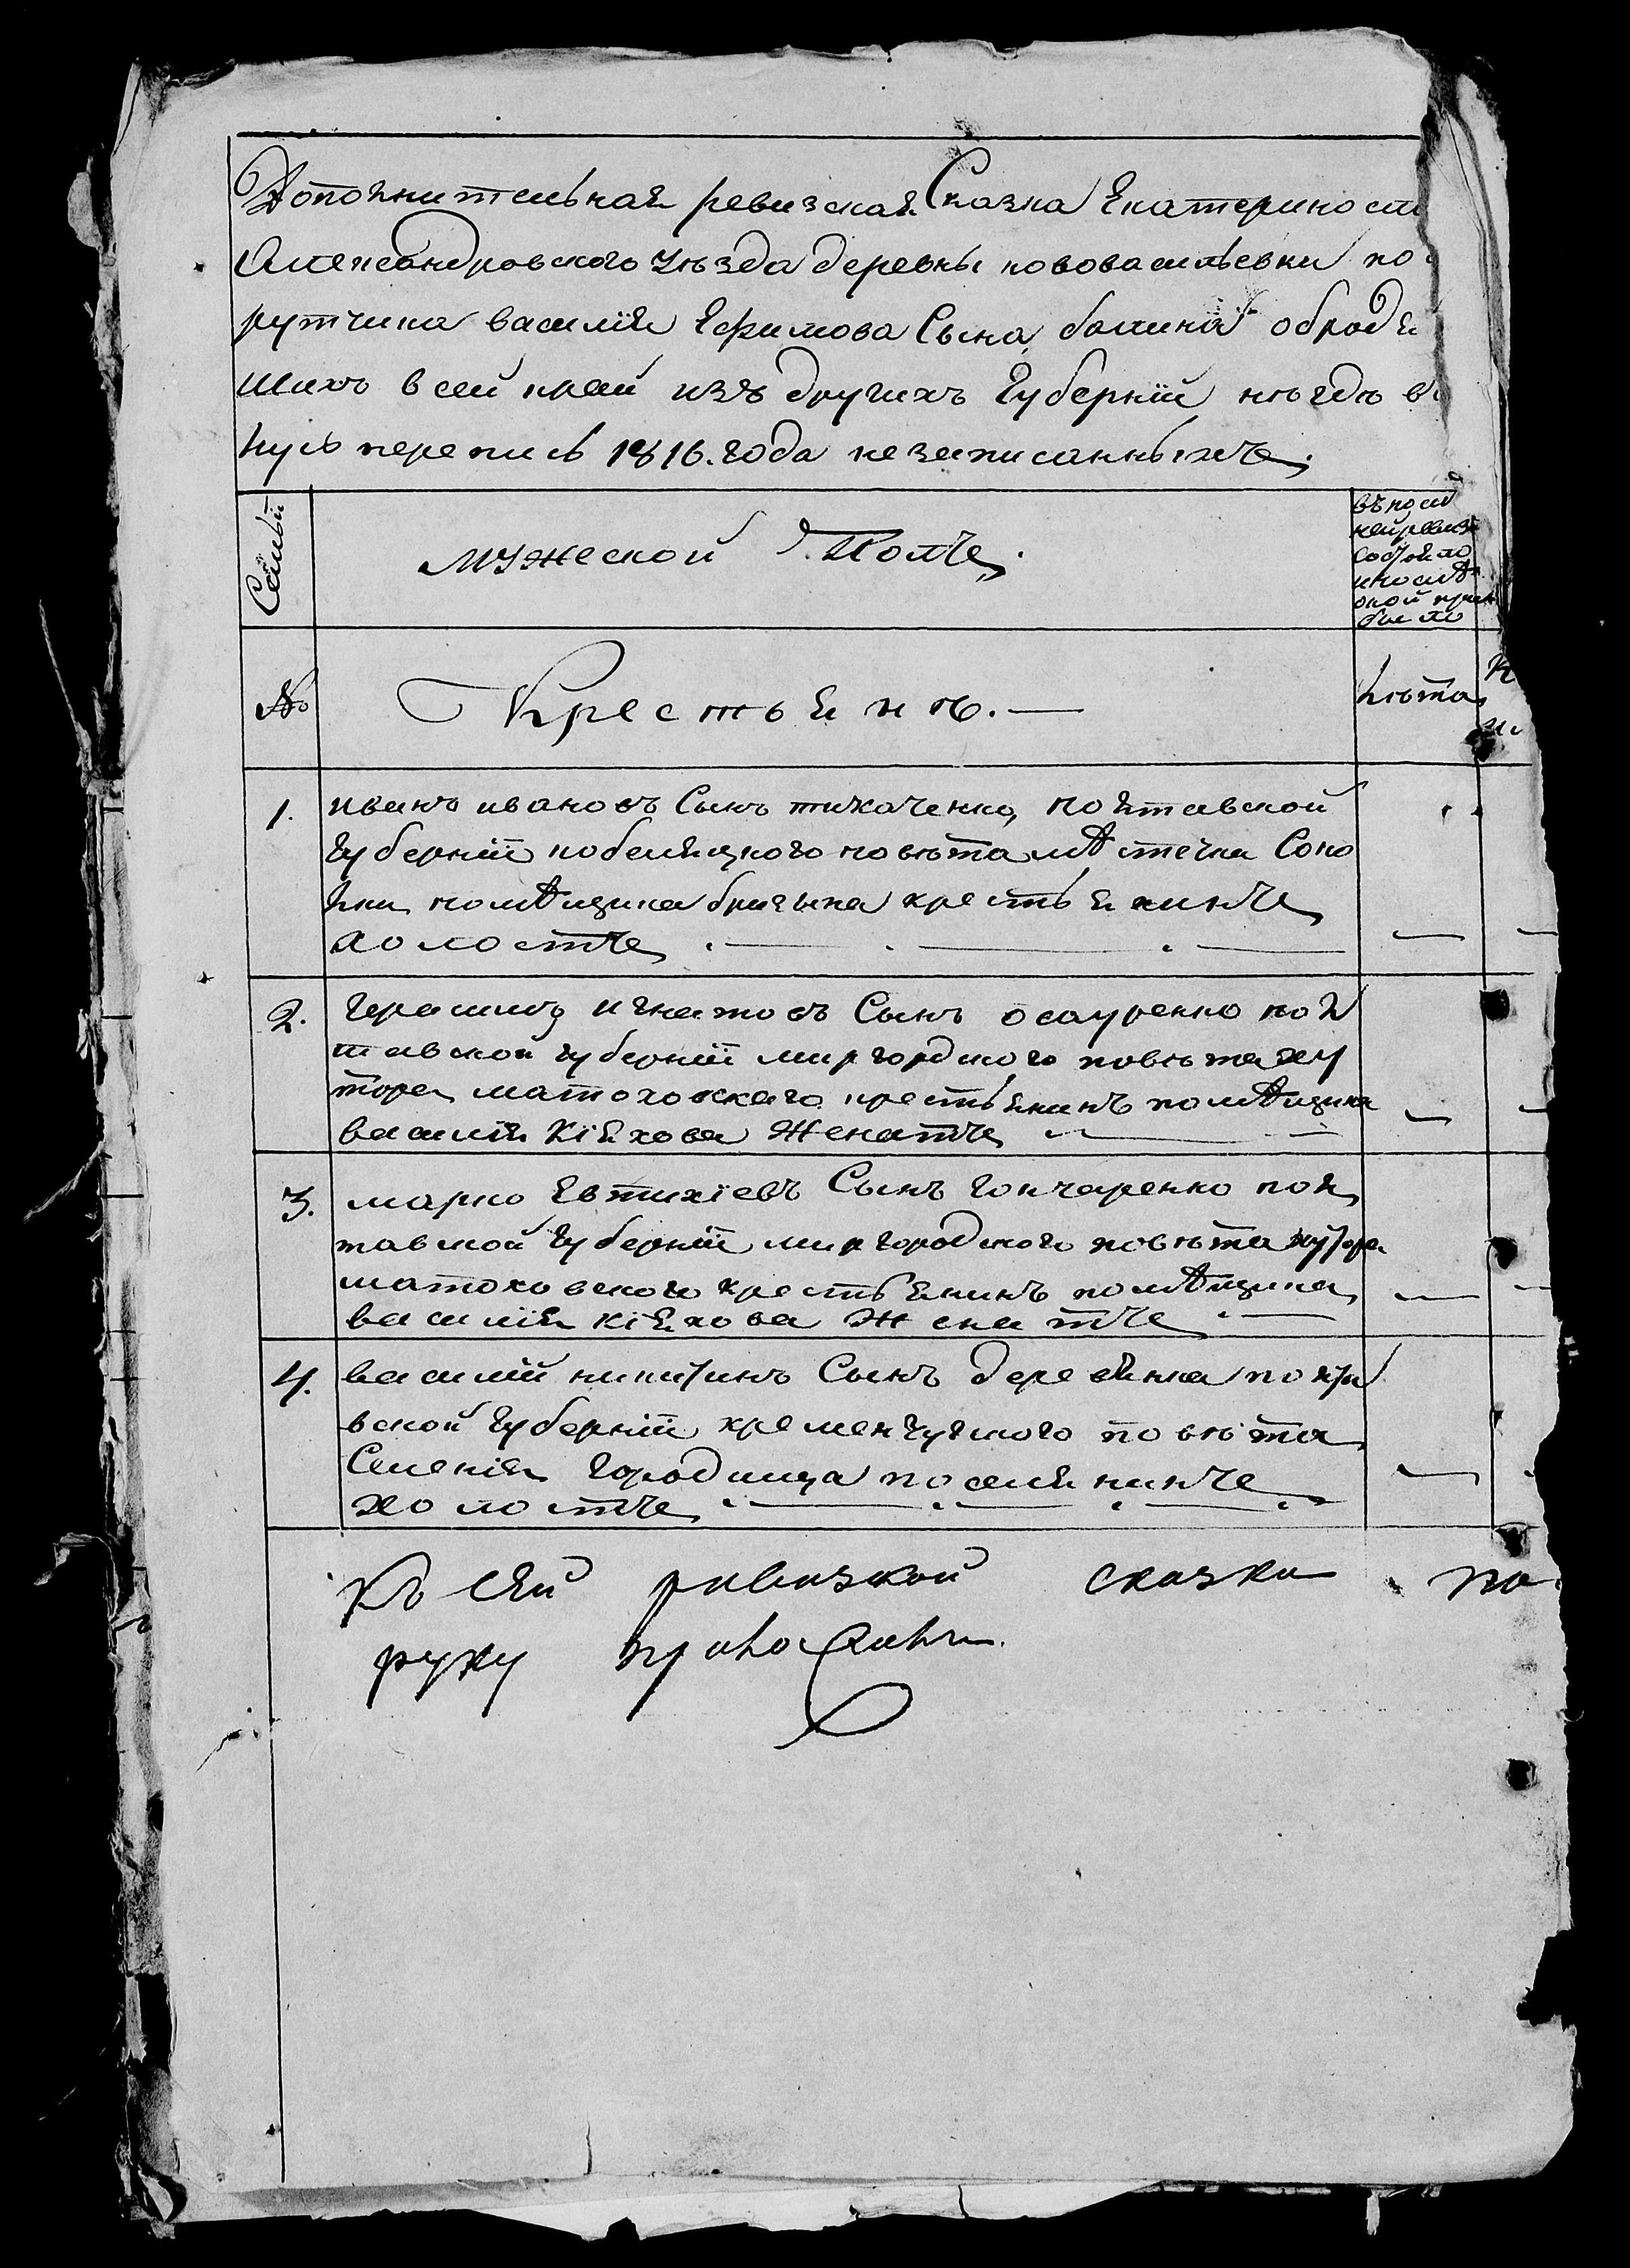 Дополнительная ревизская Сказка Екатериносл
Александровского уѣзда деревны нововасильевки по
рутчика василія Ефимова Сына бодя
шихъ в сей край изъ другихъ Губерній нѣгдѣ в
пусь перепись 1816. года незаписанныхъ
Семьи
мужеской Полъ.
въ посл
ней ревиз
состояло
и послѣ
оной при
было
№
Крестьянѣ.
лѣта
1. иванъ ивановъ Сынъ ткаченко, полтавской
Губерніи кобеляцкого повѣта мѣстечка Соко
лки помѣщика крестьянинъ
холостъ
2. Герасимъ игнатовъ Сынъ осауренко пол
тавской губерніи миргородского повѣта ху
тора матоховского крестьянинъ помѣщика
василія Кіяхова Женатъ
3. марко Евтихіевъ Сынъ Гончаренко пол
тавской Губерніи миргородского повѣта хутора
матоховского крестьянинъ помѣщика
василія кіяхова Женатъ
4. василий никитинъ Сынъ деревянка полта
вской Губерніи кременчугского повѣта
Селенія Городища поселянинъ
холостъ
Къ сей ревизкой сказки по
руку приложилъ